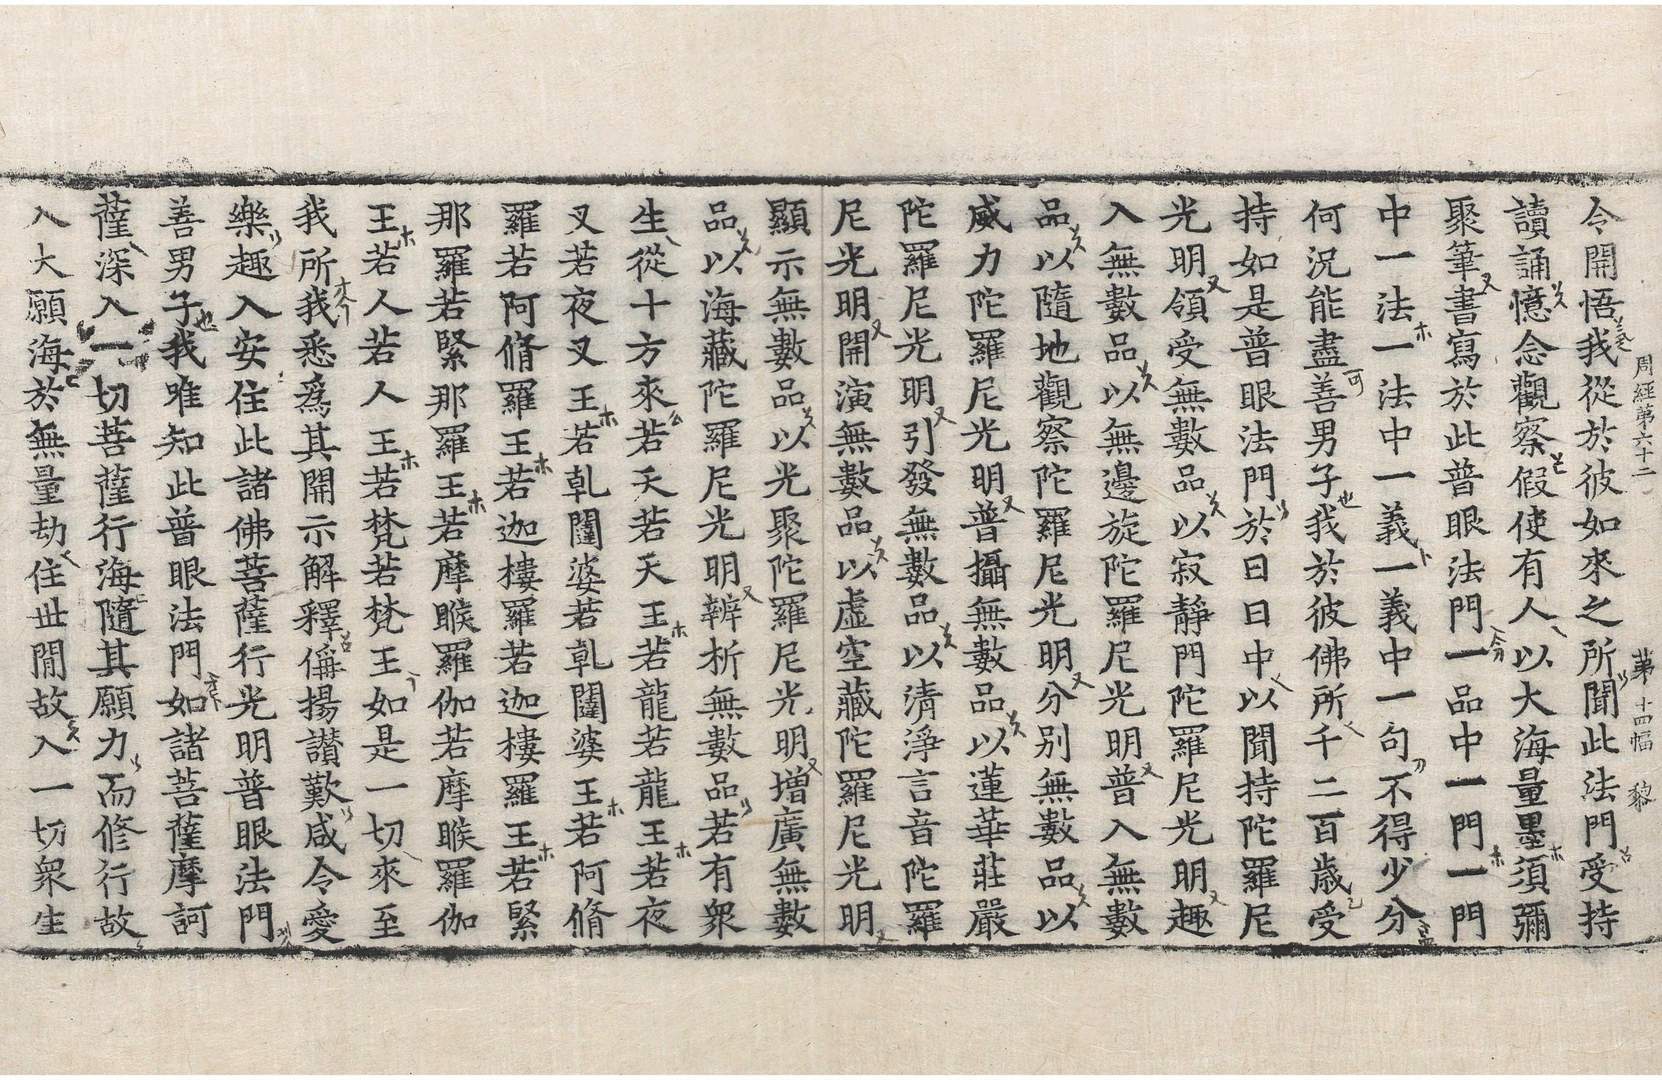 周經第六十二 第十四幅 黎
令開悟我從於彼如來之所聞此法門受持
讀誦憶念觀察假使有人以大海量墨須彌
聚筆書寫於此普眼法門一品中一門一門
中一法一法中一義一義中一句不得少分
何況能盡善男子我於彼佛所千二百歲受
持如是普眼法門於日日中以聞持陀羅尼
光明領受無數品以寂靜門陀羅尼光明趣
入無數品以無邊旋陀羅尼光明普入無數
品以隨地觀察陀羅尼光明分別無數品以
威力陀羅尼光明普攝無數品以蓮華莊嚴
陀羅尼光明引發無數品以清淨言音陀羅
尼光明開演無數品以虛空藏陀羅尼光明
顯示無數品以光聚陀羅尼光明增廣無數
品以海藏陀羅尼光明辨析無數品若有眾
生從十方來若天若天王若龍若龍王若夜
叉若夜叉王若乹闥婆若乹闥婆王若阿脩
羅若阿脩羅王若迦樓羅若迦樓羅王若緊
那羅若緊那羅王若摩睺羅伽若摩睺羅伽
王若人若人王若梵若梵王如是一切來至
我所我悉爲其開示解釋偁揚讃歎咸令愛
樂趣入安住此諸佛菩薩行光明普眼法門
善男子我唯知此普眼法門如諸菩薩摩訶
薩深入一切菩薩行海隨其願力而修行故
入大願海於無量劫住世間故入一切眾生